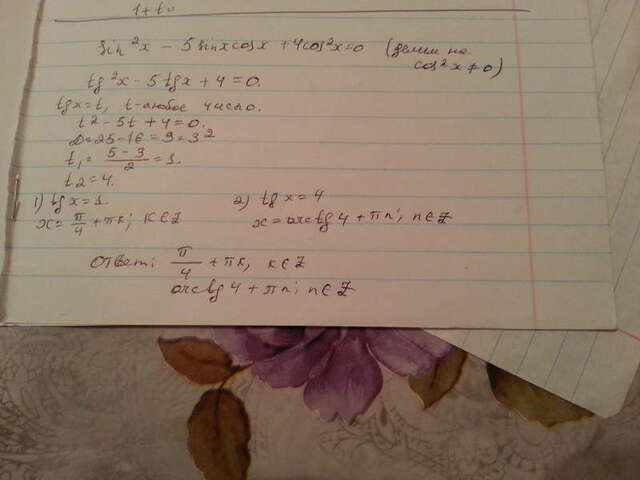 sin²x - 5sinxcosx + 4cos²x=0 (делим на
cos²x≠0)
tg²x - 5tgx + 4 = 0.
tgx=t, t-любое число.
t2 - 5t + 4 = 0.
D=25-16=9=3²
t₁= (5-3)/2 = 1.
t2=4.
1) tgx=1. 2) tgx=4
x= π/4 + πk; k∈Z x= arctg4 + πn; n∈Z
Ответ: π/4 + πk, k∈Z
arctg4 + πn; n∈Z